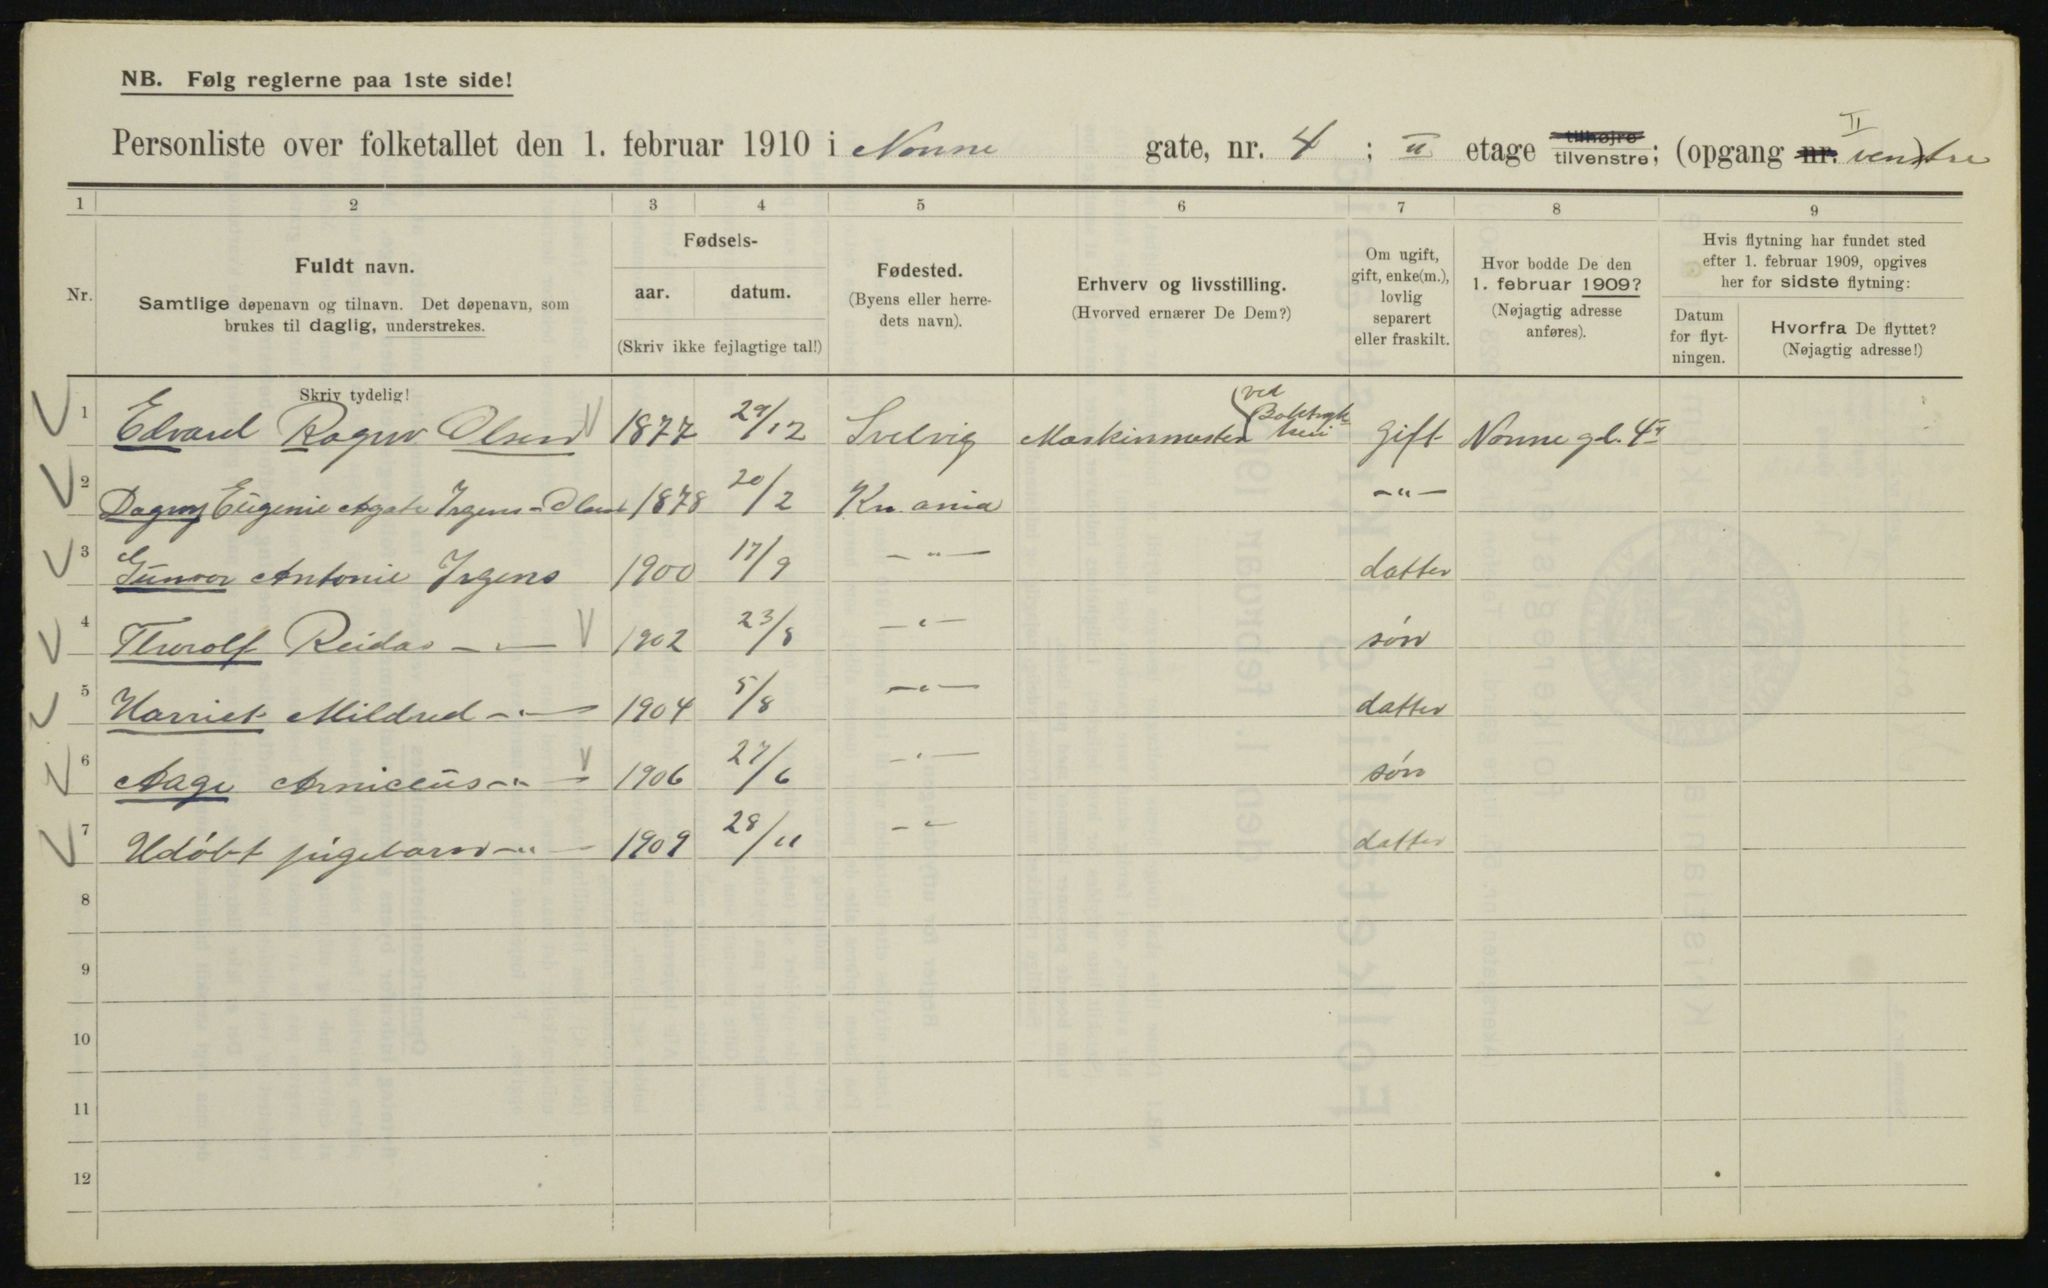 NB. Følg reglerne paa 1ste side!
Personliste over folketallet den 1. februar 1910 i Nonne gate, nr. 4 ; II etage tilhøjre tilvenstre; (opgang nr. II venstre)
1 2 3 4 5 6 7 8 9
Nr.
Fuldt navn.
Samtlige døpenavn og tilnavn. Det døpenavn, som
brukes til daglig, understrekes.
Skriv tydelig!
Fødsels-
aar. datum.
(Skriv ikke fejlagtige tal!)
Fødested.
(Byens eller herre-
dets navn).
Erhverv og livsstilling.
(Hvorved ernærer De Dem?)
Om ugift,
gift, enke(m.),
lovlig
separert
eller fraskilt.
Hvor bodde De den
1. februar 1909?
(Nøjagtig adresse
anføres).
Hvis flytning har fundet sted
efter 1. februar 1909, opgives
her for sidste flytning:
Datum
for flyt-
ningen.
Hvorfra De flyttet?
(Nøjagtig adresse!)
1 Edvard Ragnv Olsen 1877 29/12 Svelvig Maskinmester ved Boktrykkeri Gift Nonne gd. 4
2 Dagny Eugenie Agate Irgens-Olsen 1878 20/2 Kr. ania -"-
3 Gunvor Antonie Irgens 1900 17/9 -"- datter
4 Thorolf Reidar -"- 1902 23/8 -"- søn
5 Harriet Mildred -"- 1904 5/8 -"- datter
6 Aage -"- 1906 27/6 -"- søn
7 Udöbt pigebarn -"- 1909 28/11 -"- datter
8
9
10
11
12